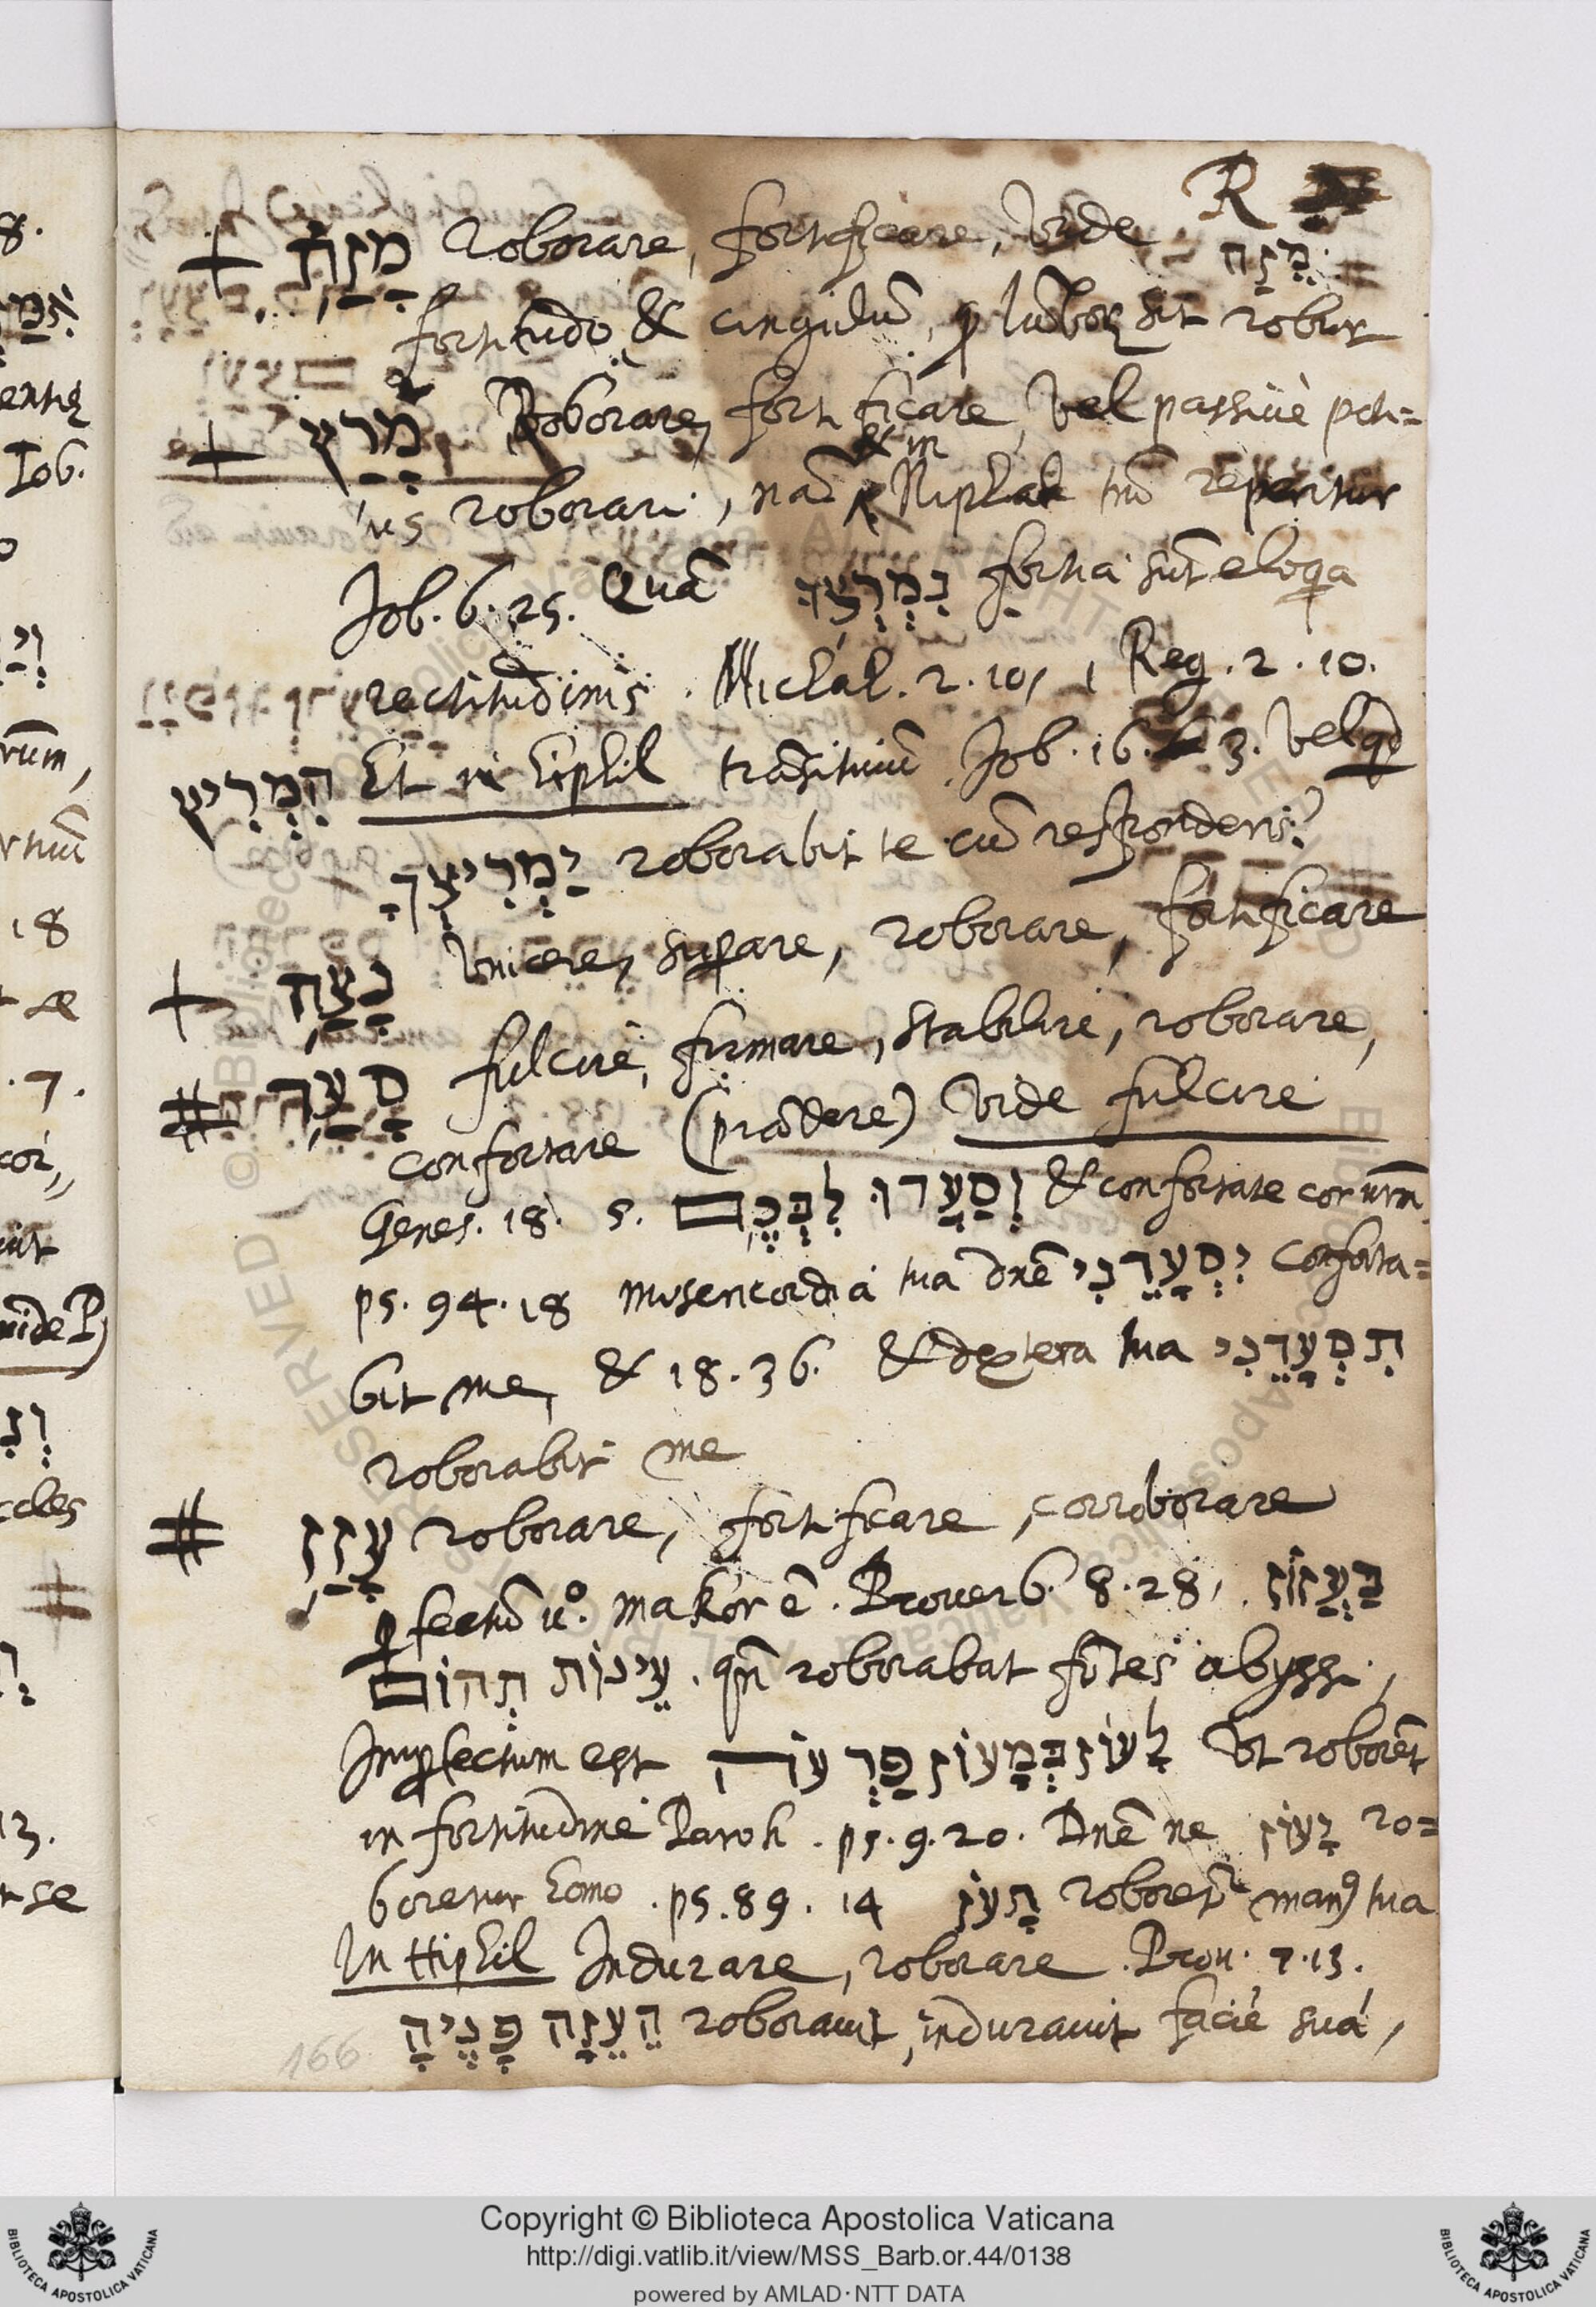 R
מָזַח Roborare, fortificare, vide מֵזַח
fortitudo & cingulũ, q lũboꝝ sit robur
מָרַץ Roborare, fortificare, vel passivè poti=
us roborari, nã & in Niphal tm̃ reperitur
Job. 6. 25. Quã נִמְרְצוּ fortia sũt eloqa
rectitudinis. Michal. 2. 10, 1 Reg. 2. 10.
הִמְרִיץ Et in hiphil trãsitivũ Job. 16. 3. vel qd
יַמְרִיצְךָ roborabit te cũ responderis?
נָצַח vincere, supare, roborare, fortificare
סָעַד fulcire, firmare, stabilire, roborare,
confortare (prãdere) vide fulcire
Genes. 18. 5. וְסַעֲדוּ לִבְּכֶם & confortate cor vrm̃
ps. 94. 18 misericordia tua dnẽ יִסְעָדֵנִי conforta=
bit me, & 18. 36. & dextera tua תִסְעָדֵנִי
roborabit me
עָזַז roborare, fortificare, corroborare
pfectũ uº. makor ẽ. Proverb. 8. 28, בַּעֲזוֹז
עִינוֹת תְּהוֹם. qñ roborabat fõtes abyssi,
Impfectum est לָעוֹז בְּמָעוֹז פַּרְעוֹה Ut roborẽt
in fortitudine Paroh. ps. 9. 20. Dnẽ ne יָעוֹז ro=
boretur homo. ps. 89. 14 תָּעֹז roboret~ man9 tua
In Hiphil Indurare, roborare. Prov. 7. 13.
הֵעֵזָה פָּנֶיהָ roboravit, induravit faciẽ suã,
166
Copyright © Biblioteca Apostolica Vaticana
http://digi.vatlib.it/view/MSS_Barb.or.44/0138
powered by AMLAD·NTT DATA
BIBLIOTECA APOSTOLICA VATICANA
BIBLIOTECA APOSTOLICA VATICANA